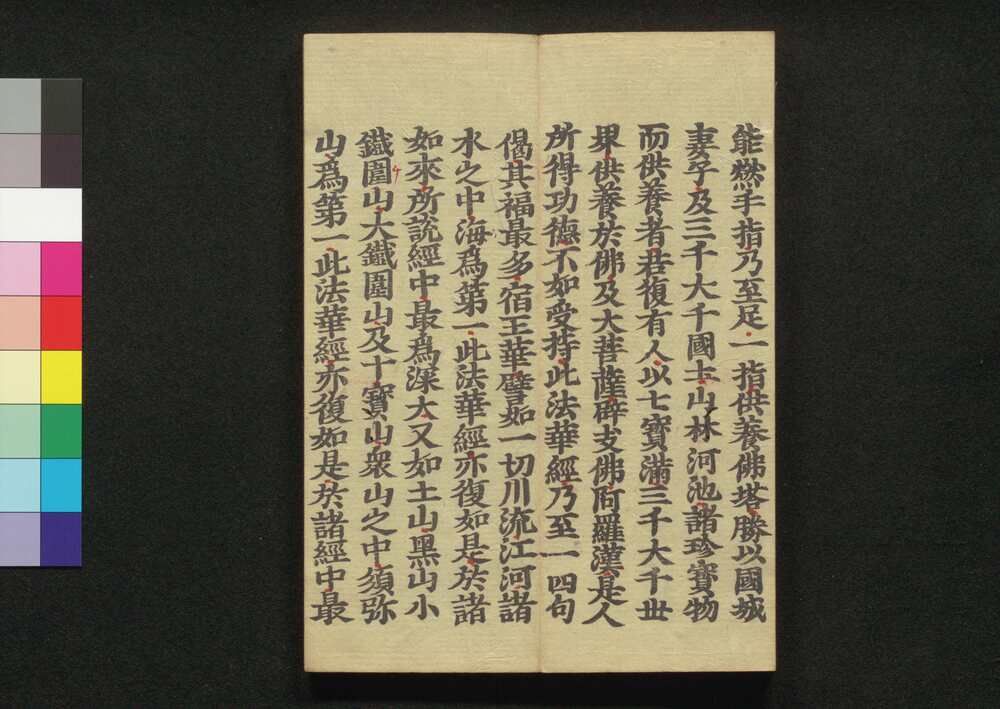 能燃手指乃至足一指供養佛塔勝以國城
妻子及三千大千國土山林河池諸珍寶物
而供養者若復有人以七寶滿三千大千世
界供養於佛及大菩薩辟支佛阿羅漢是人
所得功德不如受持此法華經乃至一四句
偈其福最多宿王華譬如一切川流江河諸
水之中海爲第一此法華經亦復如是於諸
如來所說經中最爲深大又如土山黑山小
鐵圍山大鐵圍山及十寶山衆山之中須弥
山爲第一此法華經亦復如是於諸經中最